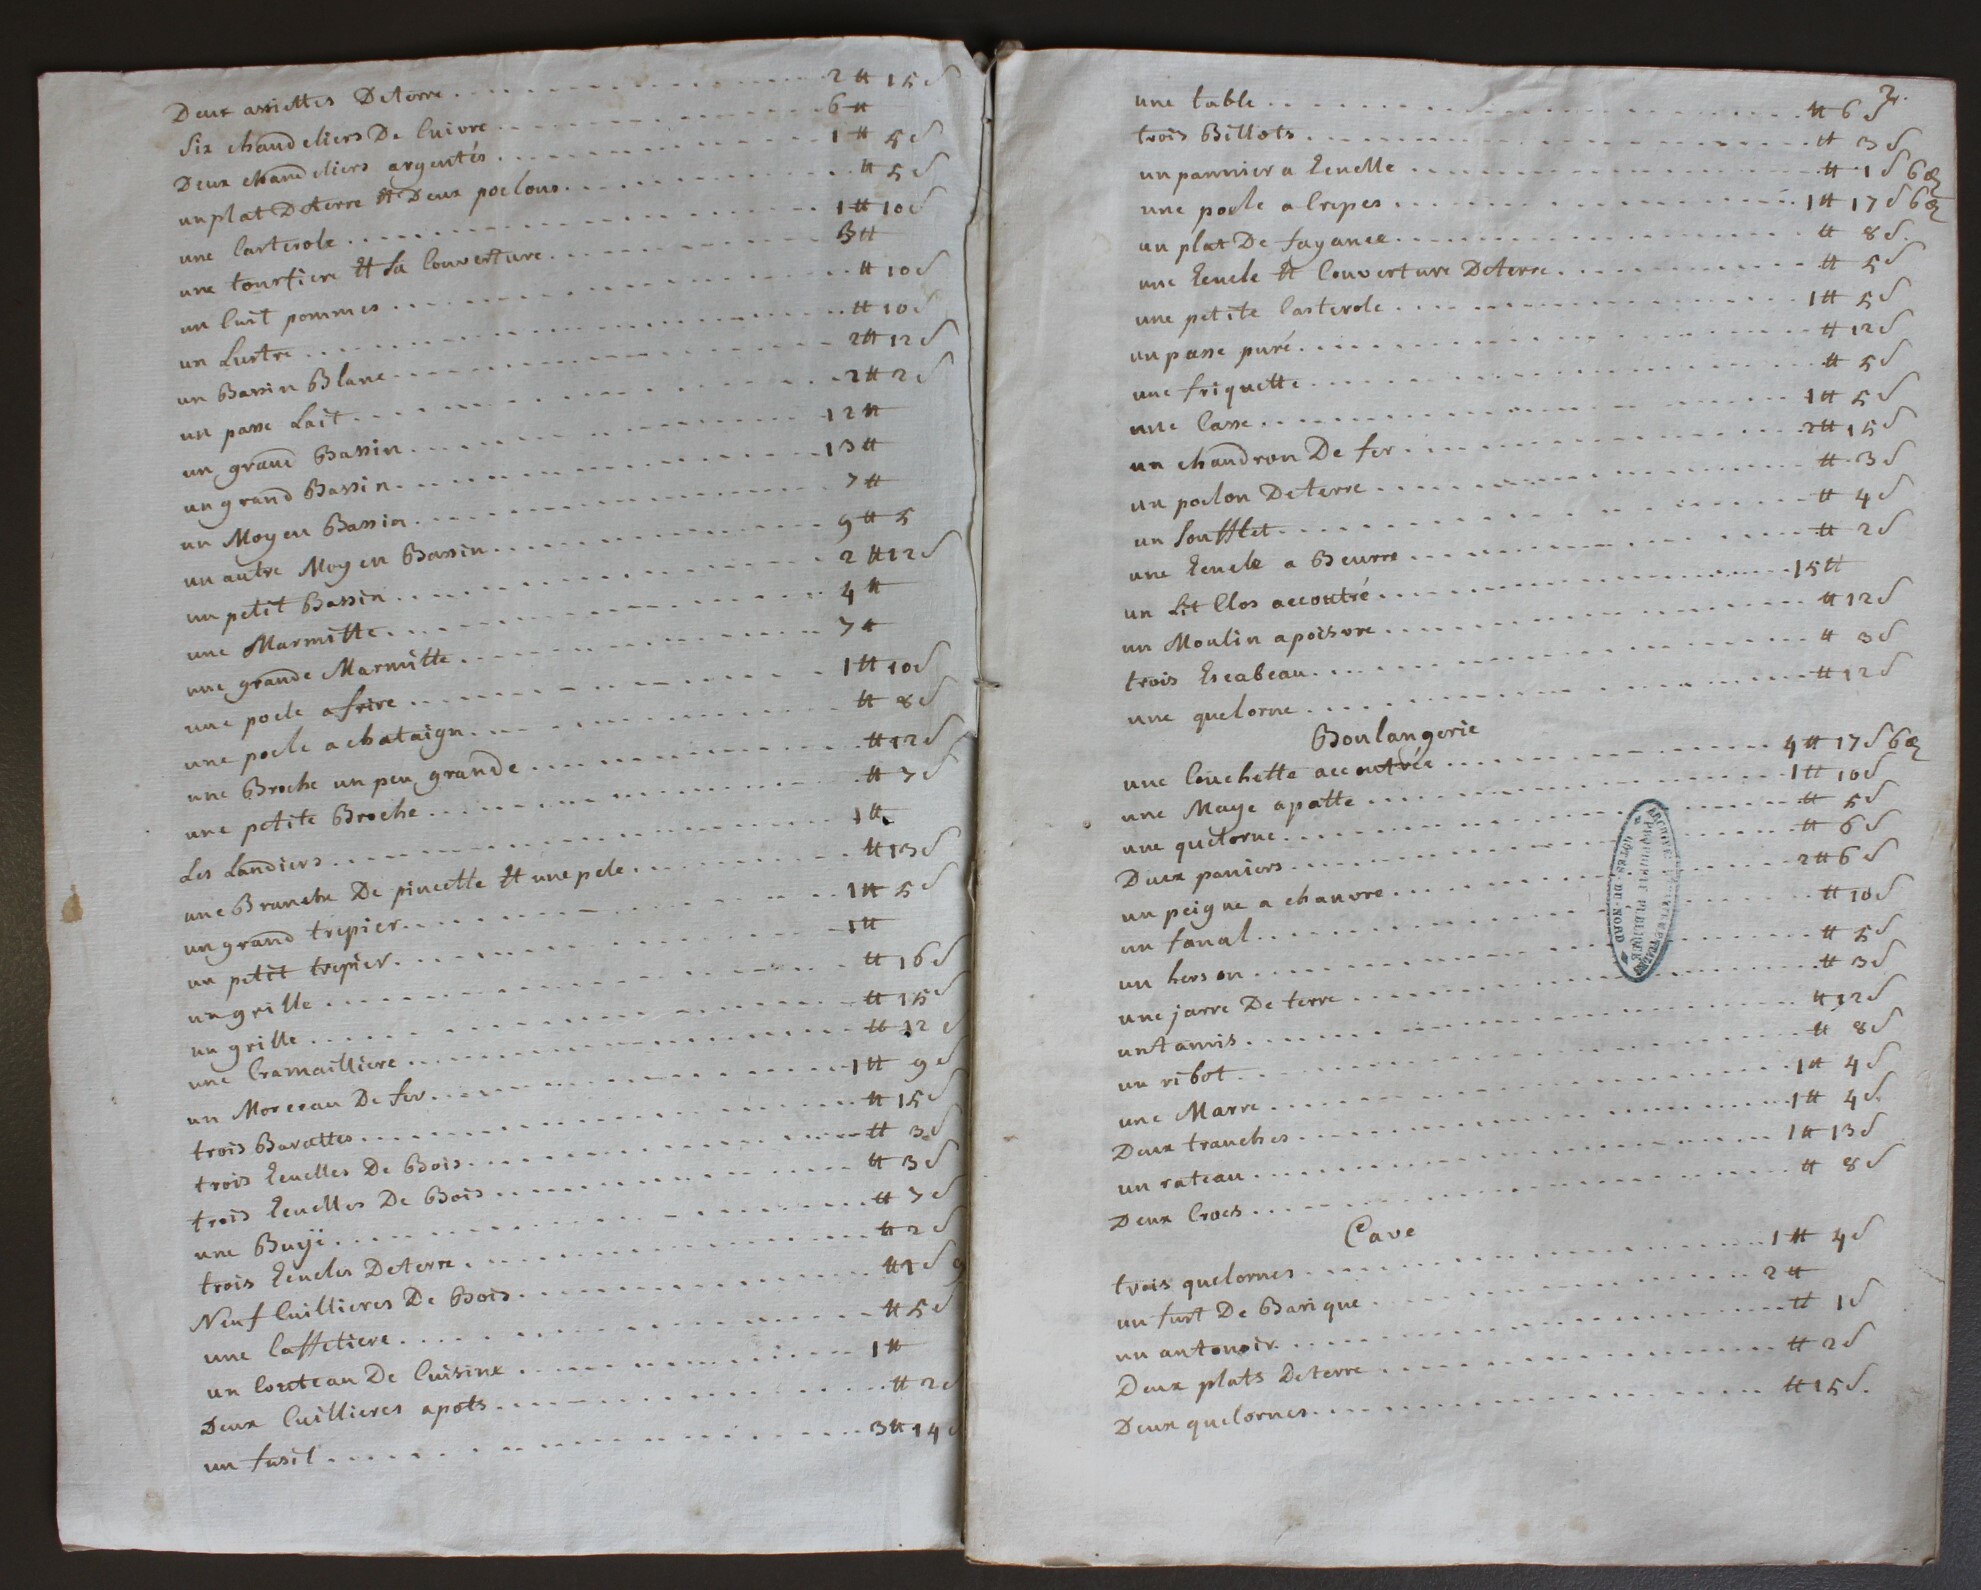 Deux assiettes De terre 2 ₶ 15 s
Six chandeliers De Cuivre 6 ₶
Deux chandeliers argentés 1 ₶ 5 s
un plat De terre Et Deux poelons ₶ 5 s
une Casterole 1 ₶ 10 s
une tourtiere Et Sa Couverture 3 ₶
un Cuit pommes ₶ 10 s
un Lustre ₶ 10 s
un Bassin Blanc 2 ₶ 12 s
un passe Lait 2 ₶ 2 s
un grand Bassin 12 ₶
un grand Bassin 13 ₶
un Moyen Bassin 7 ₶
un autre Moyen Bassin 9 ₶ 5
un petit Bassin 2 ₶ 12 s
une Marmitte 4 ₶
une grande Marmitte 7 ₶
une poele a frire 1 ₶ 10 s
une poele a chataign ₶ 8 s
une Broche un peu grande ₶ 12 s
une petite Broche ₶ 7 s
Les Landiers 1 ₶
une Branche De pincette Et une pele ₶ 13 s
un grand trepier 1 ₶ 5 s
un petit trepier 1 ₶
un grille ₶ 16 s
un grille ₶ 15 s
une Cramailliere ₶ 12 s
un Morceau De fer 1 ₶ 9 s
trois Barattes ₶ 15 s
trois Ecuelles De Bois ₶ 3 s
trois Ecuelles De Bois ₶ 3 s
une Buye ₶ 7 s
trois Ecueles De terre ₶ 2 s
Neuf Cuillieres De Bois ₶ 1 s 9
une Caffetiere ₶ 5 s
un Couteau De Cuisine 1 ₶
Deux Cuillieres a pots ₶ 2 s
un fusil 3 ₶ 14 s
2.
une table ₶ 6 s
trois Billots ₶ 3 s
un pannier a Ecuelle ₶ 1 s 6 d
une poele a Crepes 1 ₶ 17 s 6 d
un plat De fayance ₶ 8 s
une Ecuele Et Couverture De terre ₶ 5 s
une petite Casterole 1 ₶ 5 s
un passe puré ₶ 12 s
une friquette ₶ 5 s
une Casse 1 ₶ 5 s
un chaudron De fer 2 ₶ 15 s
un poelon De terre ₶ 3 s
un Soufflet ₶ 4 s
une Ecuele a Beurre ₶ 2 s
un Lit Clos accoutré 15 ₶
un Moulin a poisvre ₶ 12 s
trois Escabeau ₶ 3 s
une quelorne ₶ 12 s
Boulangerie
une Couchette accoutrée 4 ₶ 17 s 6 d
une Maye a patte 1 ₶ 10 s
une quelorne ₶ 5 s
Deux paniers ₶ 6 s
un peigne a chanvre 2 ₶ 6 s
un fanal ₶ 10 s
un herson ₶ 5 s
une jarre De terre ₶ 3 s
un tamis ₶ 12 s
un ribot ₶ 8 s
une Marre 1 ₶ 4 s
Deux tranches 1 ₶ 4 s
un rateau 1 ₶ 13 s
Deux Crocs ₶ 8 s
Cave
trois quelornes 1 ₶ 4 s
un fust De Barique 2 ₶
un antonoir ₶ 1 s
Deux plats De terre ₶ 2 s
Deux quelornes ₶ 15 s.
PROPRIÉTÉ PUBLIQUE
CÔTES-DU-NORD